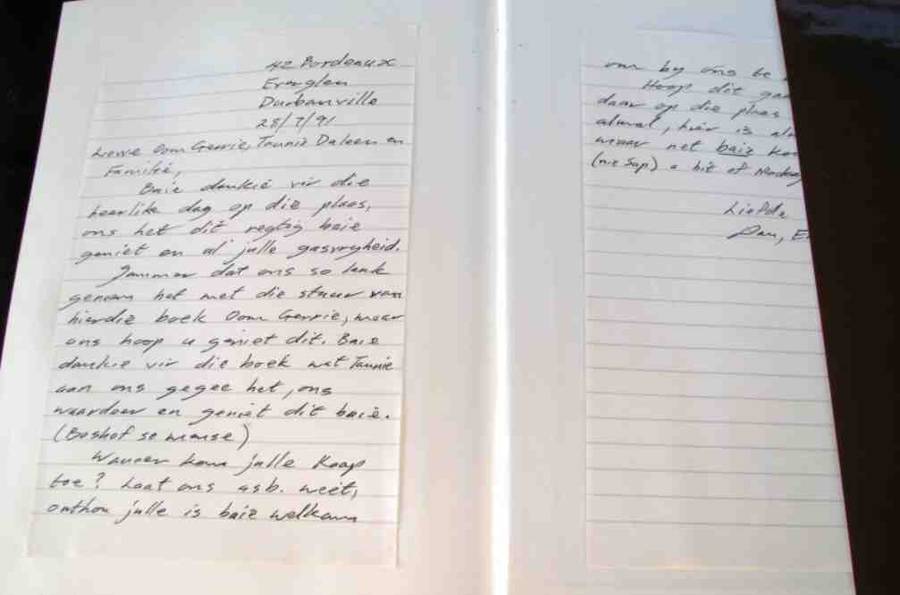 42 Bordeaux
Everglen
Durbanville
28/7/91
Liewe Oom Gerrie, Tannie Daleen en
Familie,
Baie dankie vir die
heerlike dag op die plaas,
ons het dit regtig baie
geniet en al julle gasvryheid.
Jammer dat ons so lank
geneem het met die stuur van
hierdie boek Oom Gerrie, maar
ons hoop u geniet dit. Baie
dankie vir die boek wat Tannie
aan ons gegee het, ons
waardeer en geniet dit baie.
(Boshof se mense)
Wanneer kom julle Kaap
toe? Laat ons asb. weet,
onthou julle is baie welkom
om by ons te
Hoop dit
daar op die plaas
almal, hier is
maar net baie
(nie Sap) a bie of
Liefde